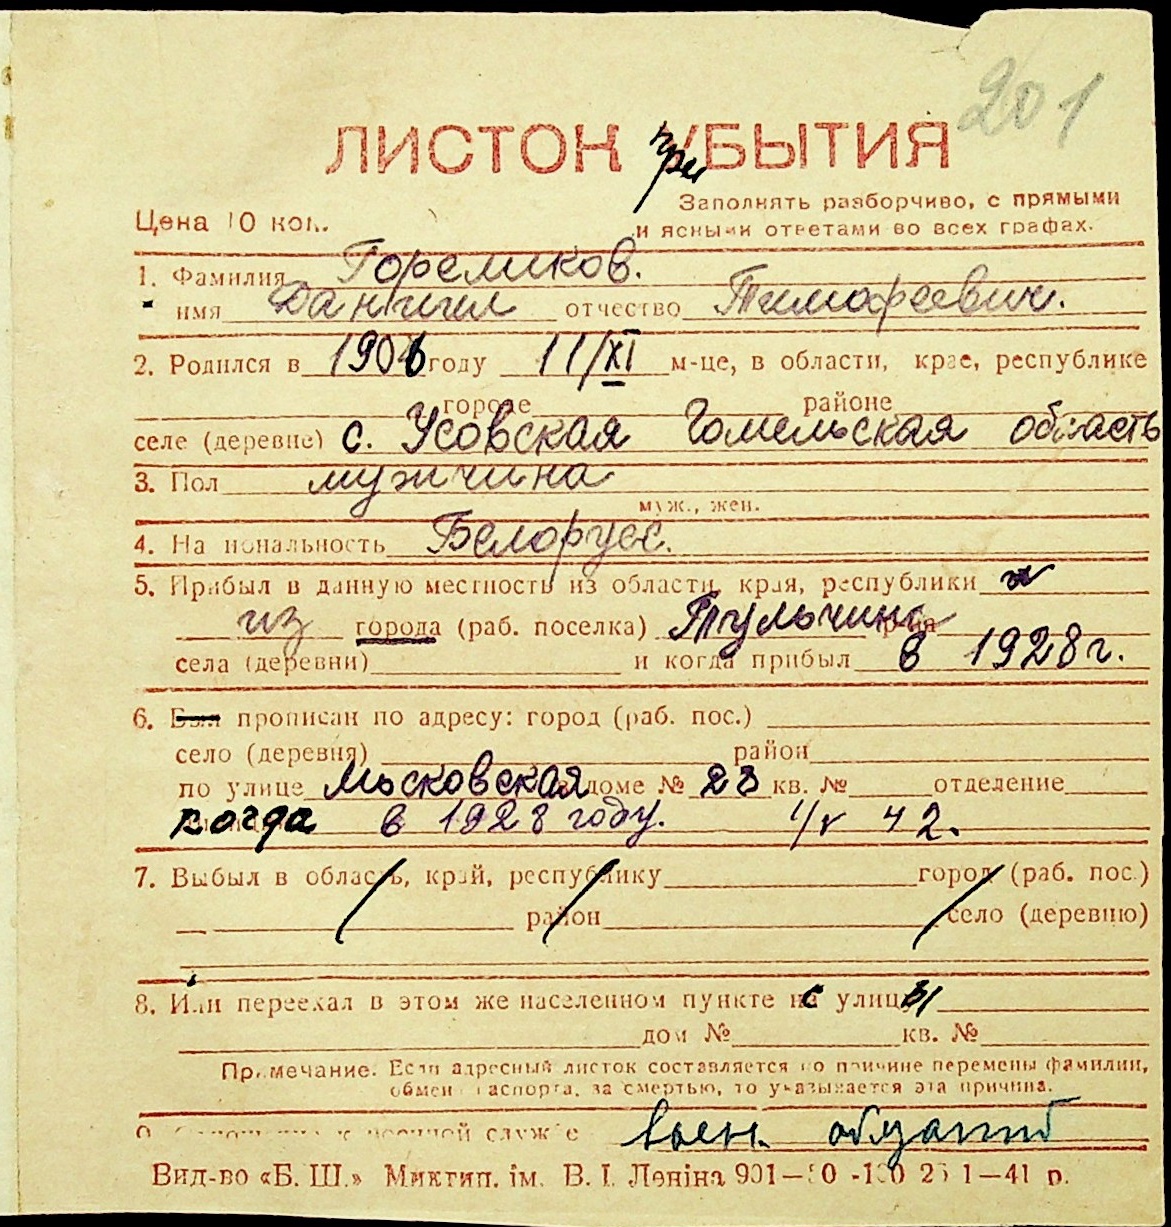 201
ЛИСТОК при УБЫТИЯ
Заполнять разборчиво, с прямыми
Цена 10 коп. и ясными ответами во всех графах.
1. Фамилия Горемиков.
имя Даниил отчество Тимафеевич.
2. Родился в 1906 году 11/XI м-це, в области, крае, республике
городе районе
селе (деревне) с. Усовская Гомельская область
3. Пол мужчина
муж., жен.
4. Национальность Белорусс.
5. Прибыл в данную местность из области, края, республики
из города (раб. поселка) Тульчина р-на
села (деревни) и когда прибыл в 1928 г.
6. Был прописан по адресу: город (раб. пос.)
село (деревня) район
по улице Мьсковская в доме № 28 кв. № отделение
когда в 1928 году. 42.
7. Выбыл в область, край, республику город (раб. пос.)
район село (деревню)
8. Или переехал в этом же населенном пункте с улицы
дом № кв. №
Примечание. Если адресный листок составляется по причине перемены фамилии,
обмена паспорта, за смертью, то указывается эта причина.
9. Отношение к военной службе воен. обязанный
Вид-во «Б. Ш.» Миктип. ім. В. І. Леніна 901—50 -100 25 1—41 р.